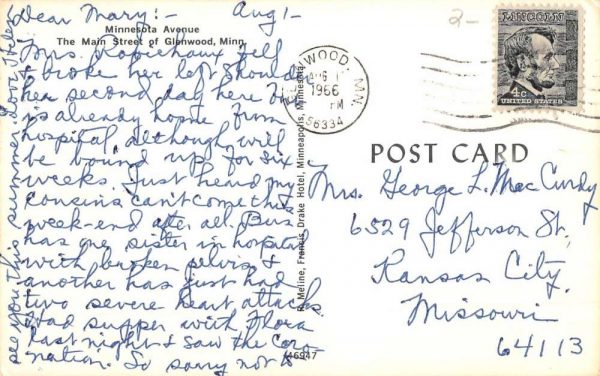 Dear Mary:- Aug 1-
Minnesota Avenue
The Main Street of Glenwood, Minn.
Mrs. Robichaux fell
& broke her left shoulder
her second day here
is already home from
hospital, although will
be bound up for six
weeks. Just heard my
cousins can't come this
week-end after all. Bus
has one sister in hospital
with broken pelvis &
another has just had
two severe heart attacks.
Had supper with Flora
last night & saw the Coro
nation. So sorry not to
see you this summer. Love Helen
46947
R. Meline, Francis Drake Hotel, Minneapolis, Minnesota
GLENWOOD, MN.
AUG 1
PM
1966
56334
2-
LINCOLN
4c
UNITED STATES
POST CARD
Mrs. George L. MacCurdy
6529 Jefferson St.,
Kansas City,
Missouri
64113